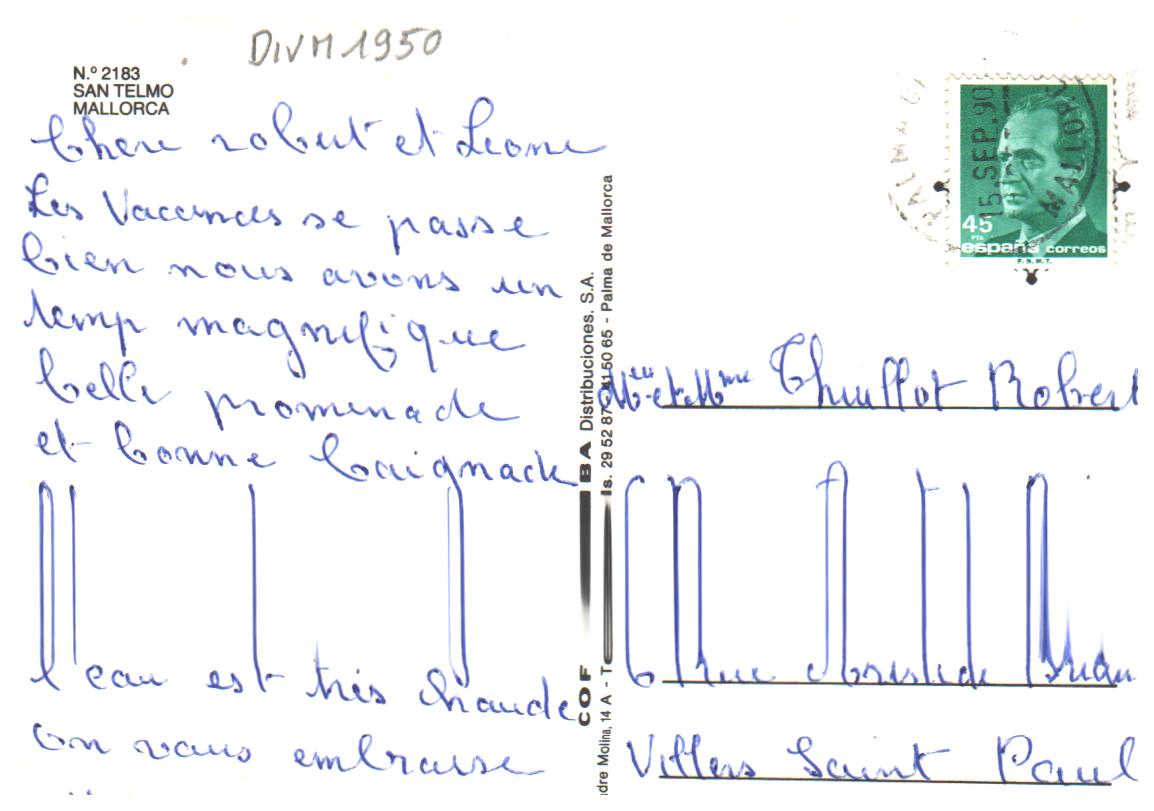 DIVM 1950
N.º 2183
SAN TELMO
MALLORCA
Chere robert et Leone
Les Vacances se passe
bien nous avons un
temp magnifique
belle promenade
et bonne baignade
l'eau est très chaude
on vous embrasse
COF
BA Distribuciones, S.A.
dre Molina, 14 A - T
ls. 29 52 87 - 41 50 65 - Palma de Mallorca
15. SEP. 90
MALLORCA
45
PTA
españa correos
F.N.M.T.
et Mme Thuillot Robert
6 Rue Aristide Brian
Villers Saint Paul